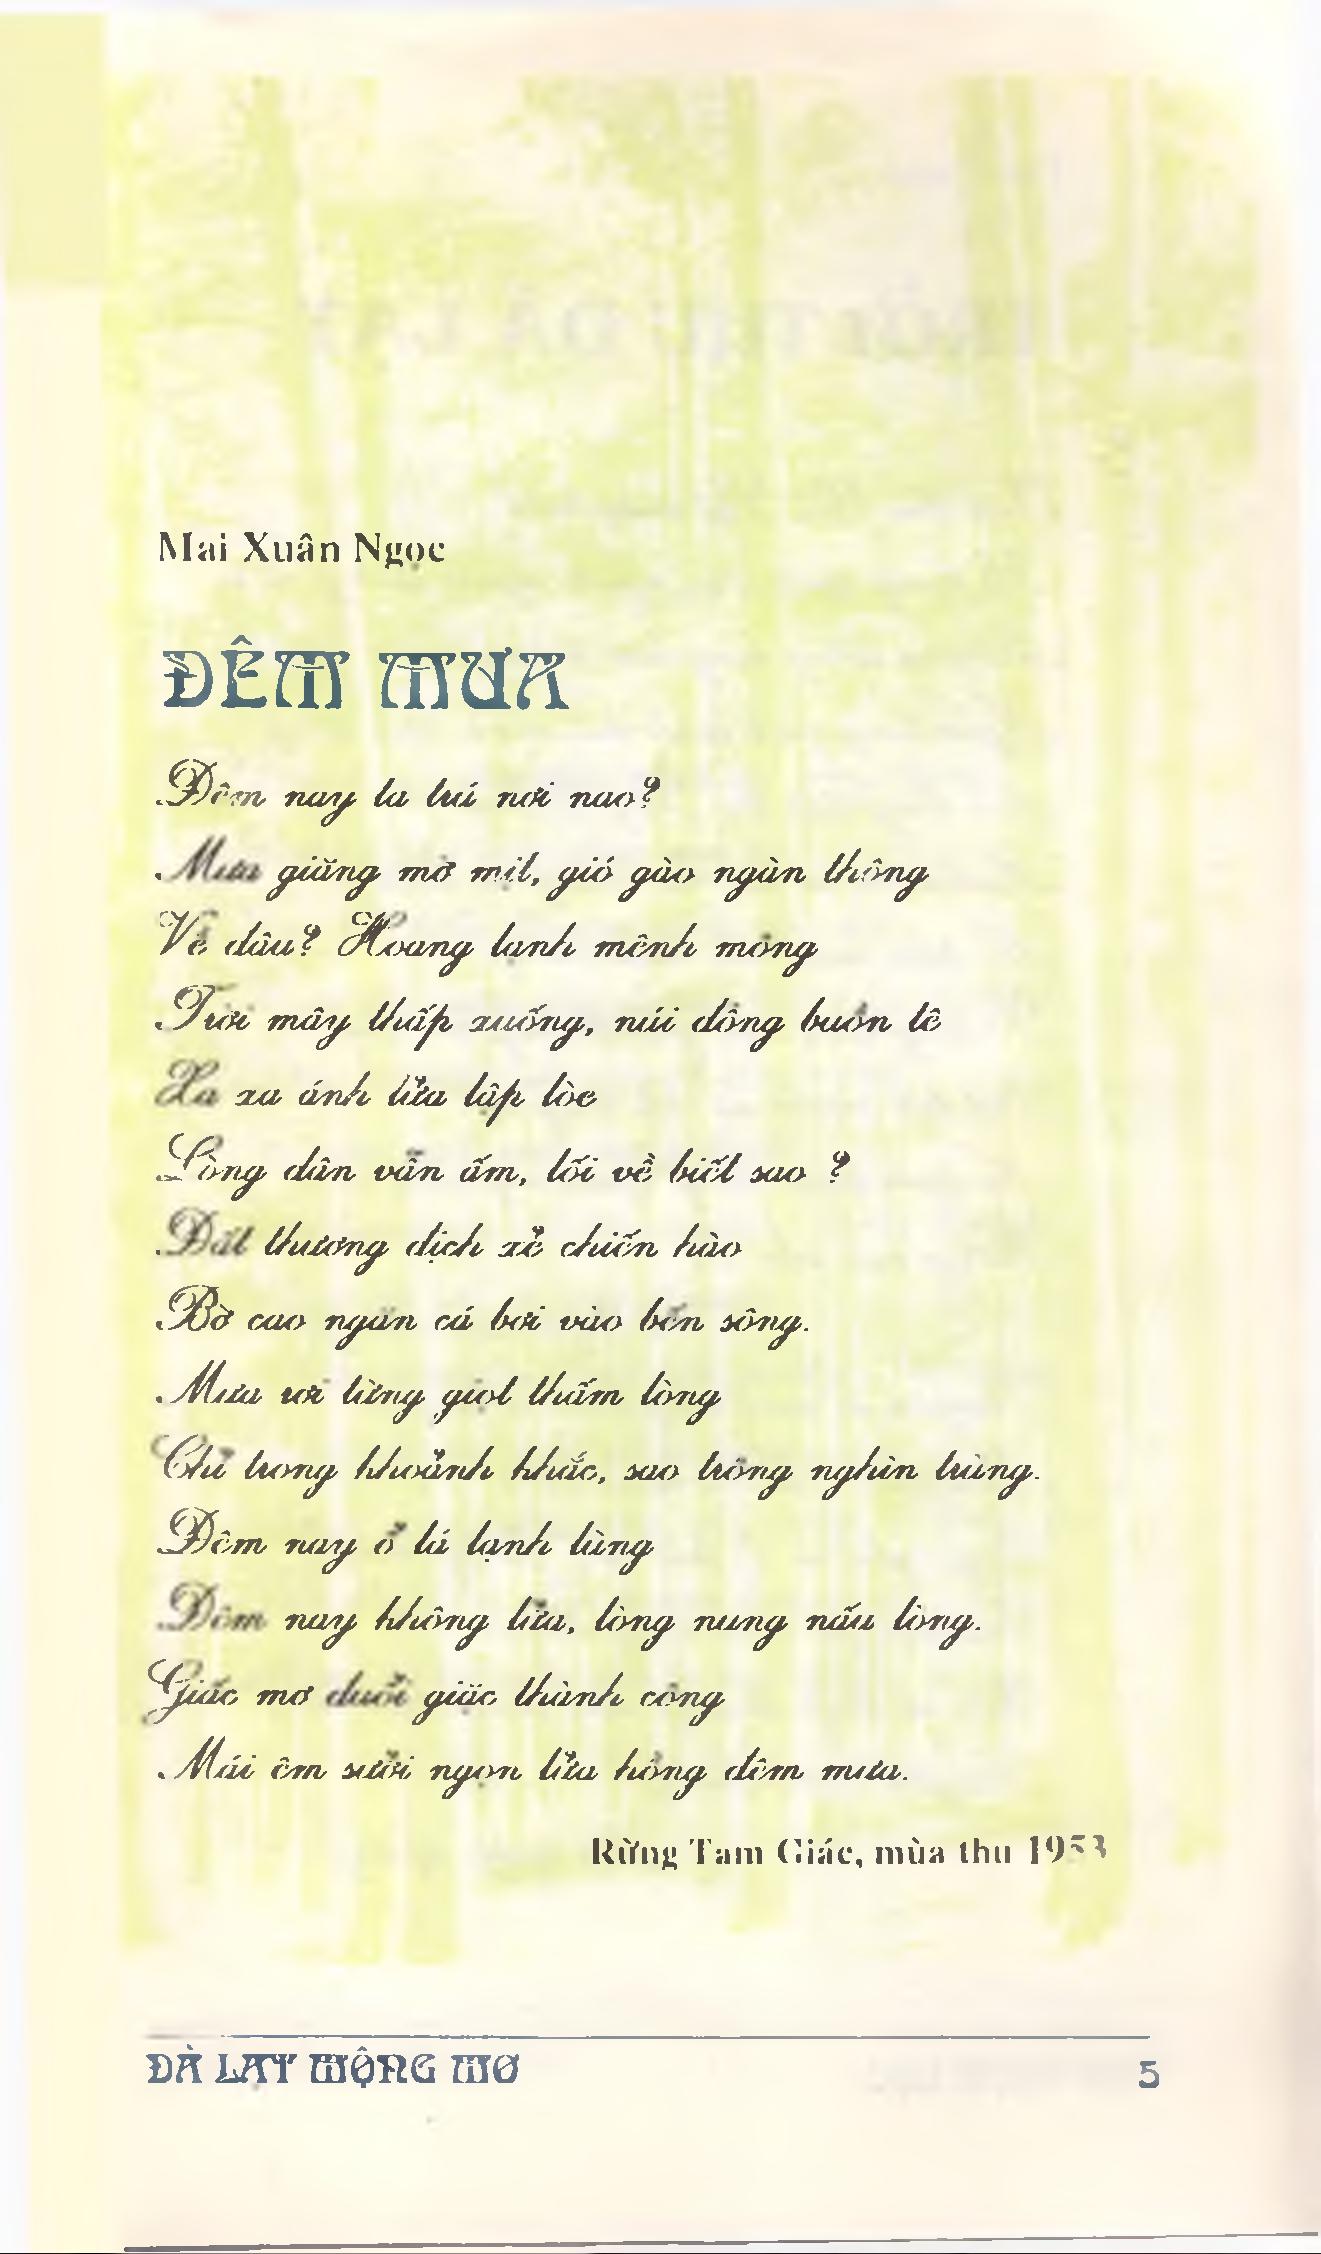 Mai Xuân Ngọc
ĐÊM MƯA
Đêm nay ta trú nơi nao?
Mưa giăng mờ mịt, gió gào ngàn thông
Về đâu? Hoang lạnh mênh mông
Trời mây thấp xuống, núi đồng buồn tê
Xa xa ánh lửa lập lòe
Lòng dân vẫn ấm, lối về biết sao ?
Đất thương địch xẻ chiến hào
Bờ cao ngăn cá bơi vào bến sông.
Mưa rơi từng giọt thấm lòng
Chỉ trong khoảnh khắc, sao trông nghìn trùng.
Đêm nay ổ lá lạnh lùng
Đêm nay không lửa, lòng nung nấu lòng.
Giấc mơ đuổi giặc thành công
Mái êm sưởi ngọn lửa hồng đêm mưa.
Rừng Tam Giác, mùa thu 1953
ĐÀ LẠT MỘNG MƠ 5